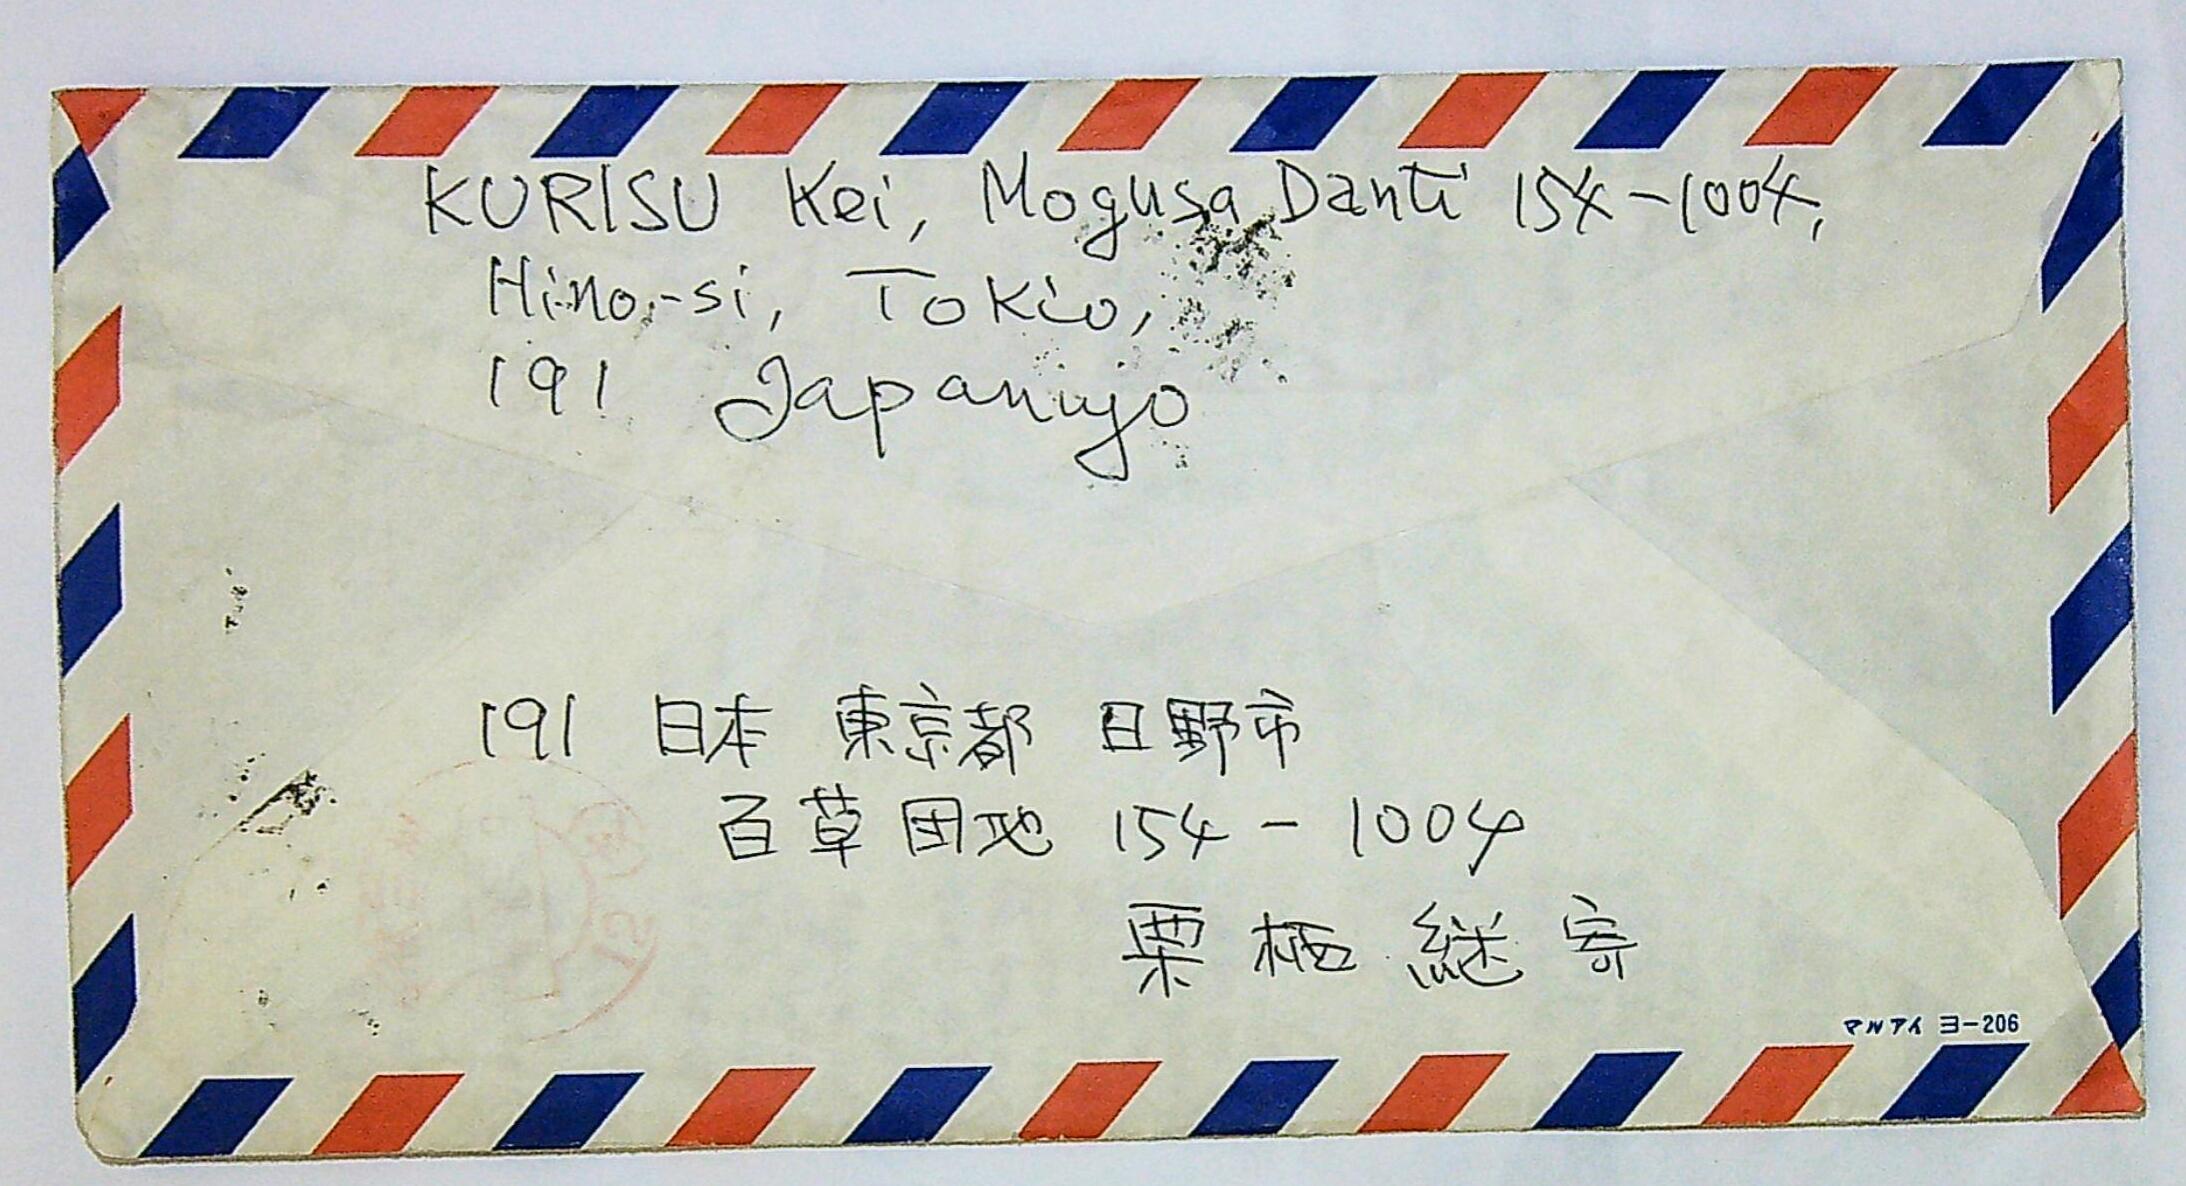 KURISU Kei, Mogusa Danti 154-1004,
Hino-si, Tokio,
191 Japanujo
191 日本 東京都 日野市
百草団地 154-1004
栗栖 継 寄
マルアイ ヨ-206